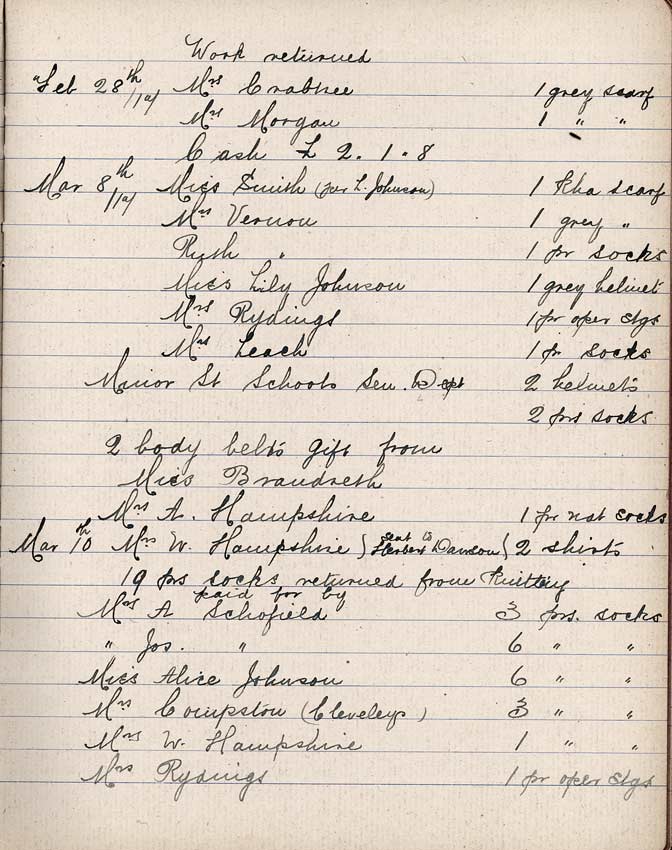 Work returned
Feb 28th /19/ Mrs Crabtree 1 grey scarf
Mrs Morgan 1 " "
Cash £ 2. 1. 8
Mar 8th /19/ Miss Smith (per L. Johnson) 1 Kha scarf
Mrs Vernon 1 grey "
Ruth " 1 pr socks
Miss Lily Johnson 1 grey helmet
Mrs Rydings 1 pr oper stgs
Mrs Leach 1 pr socks
Manor St Schools Sen. Dept 2 helmets
2 prs socks
2 body belts gift from
Miss Brandreth
Mrs A. Hampshire 1 pr nat socks
Mar 10th Mrs W. Hampshire (sent to Herbert Dawson) 2 shirts
19 prs socks returned from Knitting
paid for by
Mrs A Schofield 3 prs. socks
" Jos. " 6 " "
Miss Alice Johnson 6 " "
Mrs Compston (Cleveleys) 3 " "
Mrs W. Hampshire 1 " "
Mrs Rydings 1 pr oper stgs